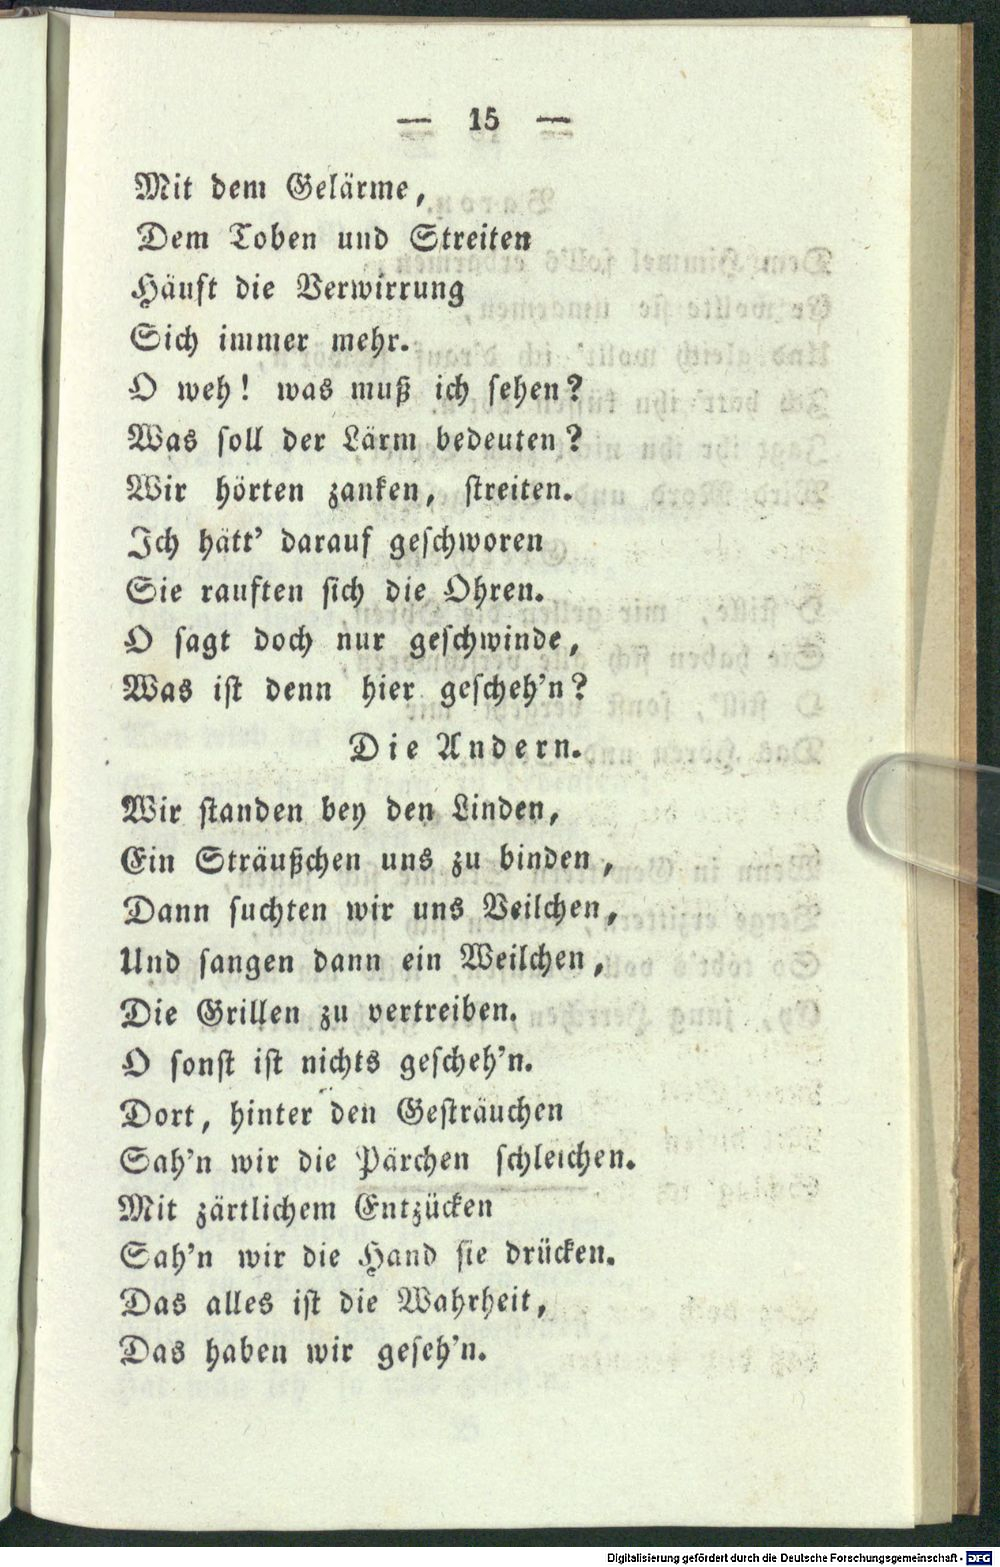 — 15 —
Mit dem Gelärme,
Dem Toben und Streiten
Häuft die Verwirrung
Sich immer mehr.
O weh! was muß ich sehen?
Was soll der Lärm bedeuten?
Wir hörten zanken, streiten.
Ich hätt' darauf geschworen
Sie rauften sich die Ohren.
O sagt doch nur geschwinde,
Was ist denn hier gescheh'n?
Die Andern.
Wir standen bey den Linden,
Ein Sträußchen uns zu binden,
Dann suchten wir uns Veilchen,
Und sangen dann ein Weilchen,
Die Grillen zu vertreiben.
O sonst ist nichts gescheh'n.
Dort, hinter den Gesträuchen
Sah'n wir die Pärchen schleichen.
Mit zärtlichem Entzücken
Sah'n wir die Hand sie drücken.
Das alles ist die Wahrheit,
Das haben wir geseh'n.
Digitalisierung gefördert durch die Deutsche Forschungsgemeinschaft - DFG